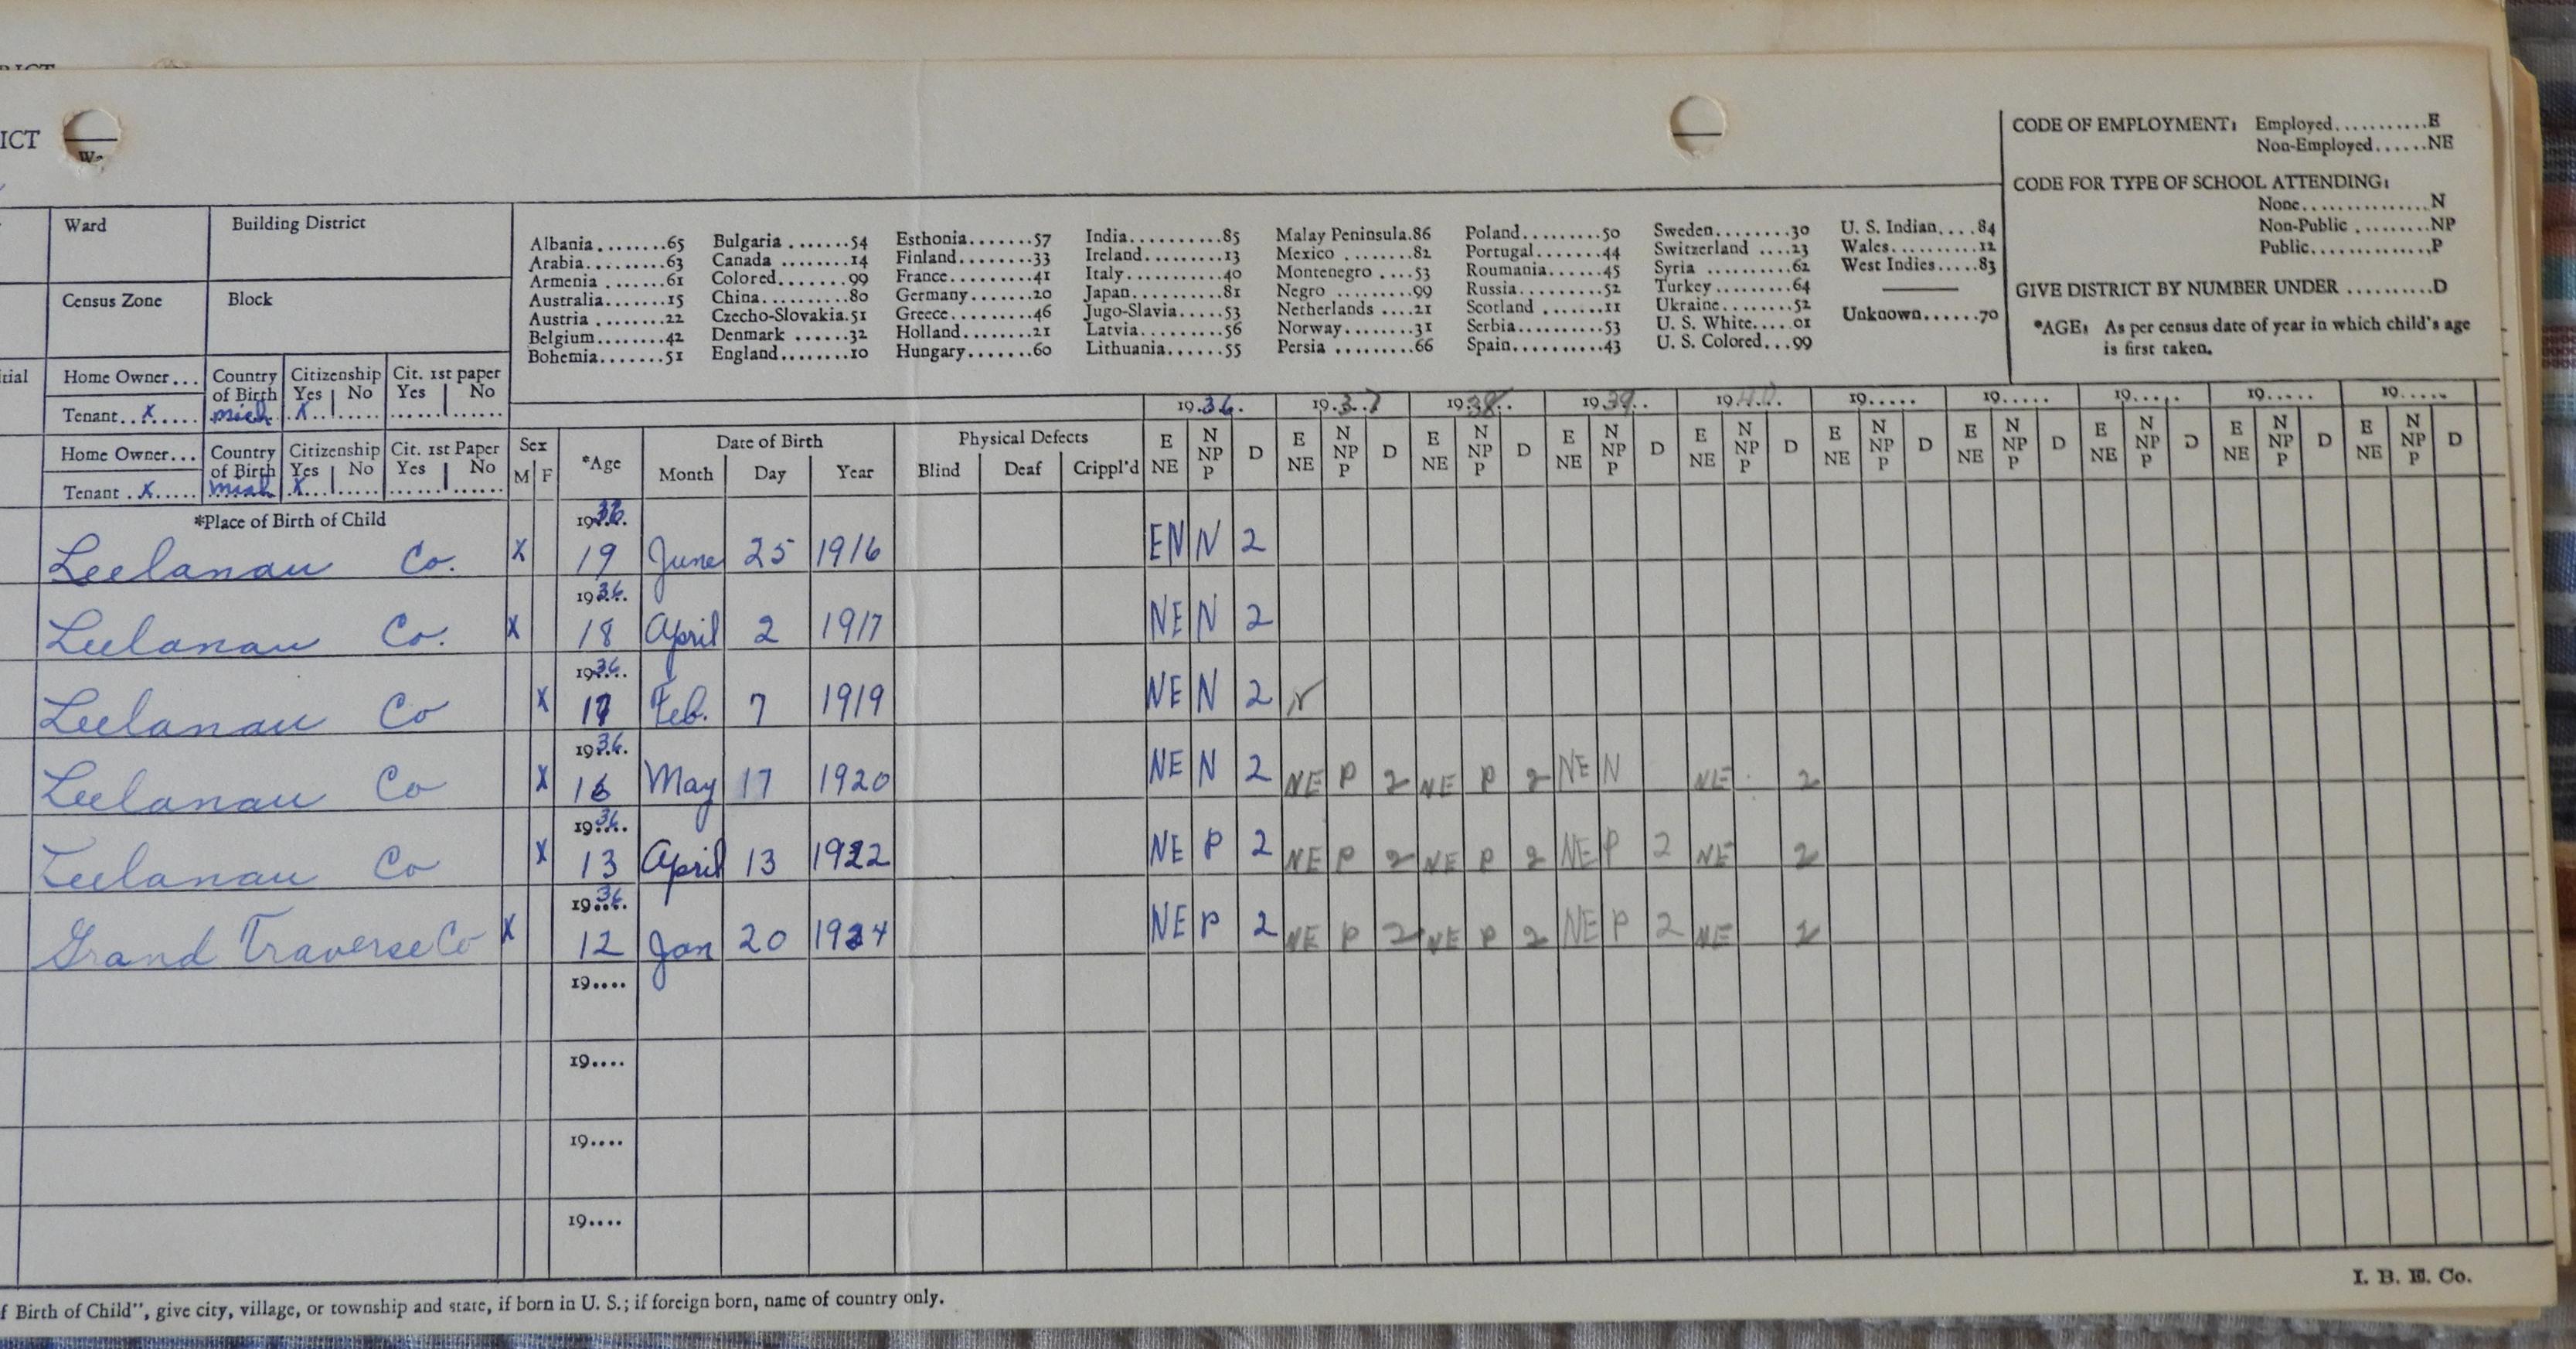 ICT
CODE OF EMPLOYMENT: Employed...........E
Non-Employed......NE
CODE FOR TYPE OF SCHOOL ATTENDING:
None................N
Non-Public .........NP
Public..............P
GIVE DISTRICT BY NUMBER UNDER ..........D
*AGE: As per census date of year in which child's age
is first taken.
Ward Building District
Census Zone Block
Albania........65 Bulgaria .......54 Esthonia.......57 India..........85 Malay Peninsula.86 Poland.........50 Sweden........30 U. S. Indian....84
Arabia.........63 Canada ........14 Finland........33 Ireland........13 Mexico ........82 Portugal.......44 Switzerland ....23 Wales..........12
Armenia .......61 Colored........99 France.........41 Italy..........40 Montenegro ....53 Roumania......45 Syria .........62 West Indies.....83
Australia......15 China..........80 Germany.......20 Japan..........81 Negro .........99 Russia.........52 Turkey ........64
Austria ........22 Czecho-Slovakia.51 Greece.........46 Jugo-Slavia.....53 Netherlands ....21 Scotland .......11 Ukraine........52 Unknown......70
Belgium........42 Denmark ......32 Holland........21 Latvia.........56 Norway........31 Serbia.........53 U. S. White....01
Bohemia.......51 England........10 Hungary.......60 Lithuania......55 Persia .........66 Spain..........43 U. S. Colored...99
itial Home Owner... Country of Birth Citizenship Yes No Cit. 1st paper Yes No
Tenant..x..... Mich X
19.36. 19.37 19.38. 19.39. 19.40. 19..... 19..... 19..... 19..... 19.....
Home Owner... Country of Birth Citizenship Yes No Cit. 1st Paper Yes No Sex M F *Age Date of Birth Month Day Year Physical Defects Blind Deaf Crippl'd E NE N NP P D E NE N NP P D E NE N NP P D E NE N NP P D E NE N NP P D E NE N NP P D E NE N NP P D E NE N NP P D E NE N NP P D E NE N NP P D
Tenant .x..... Mich X
*Place of Birth of Child
1936.
Leelanau Co. X 19 June 25 1916 EN N 2
1936.
Leelanau Co. X 18 April 2 1917 NE N 2
1936.
Leelanau Co X 17 Feb. 7 1919 NE N 2
1936.
Leelanau Co X 16 May 17 1920 NE N 2 NE P 2 NE P 2 NE N NE 2
1936.
Leelanau Co X 13 April 13 1922 NE P 2 NE P 2 NE P 2 NE P 2 NE 2
1936.
Grand Traverse Co X 12 Jan 20 1924 NE P 2 NE P 2 NE P 2 NE P 2 NE 2
19....
19....
19....
19....
I. B. E. Co.
f Birth of Child", give city, village, or township and state, if born in U. S.; if foreign born, name of country only.